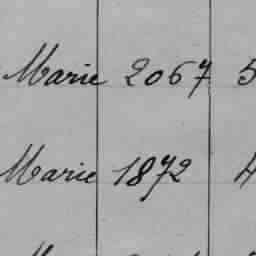 Marie 2067 5
Marie 1872 4